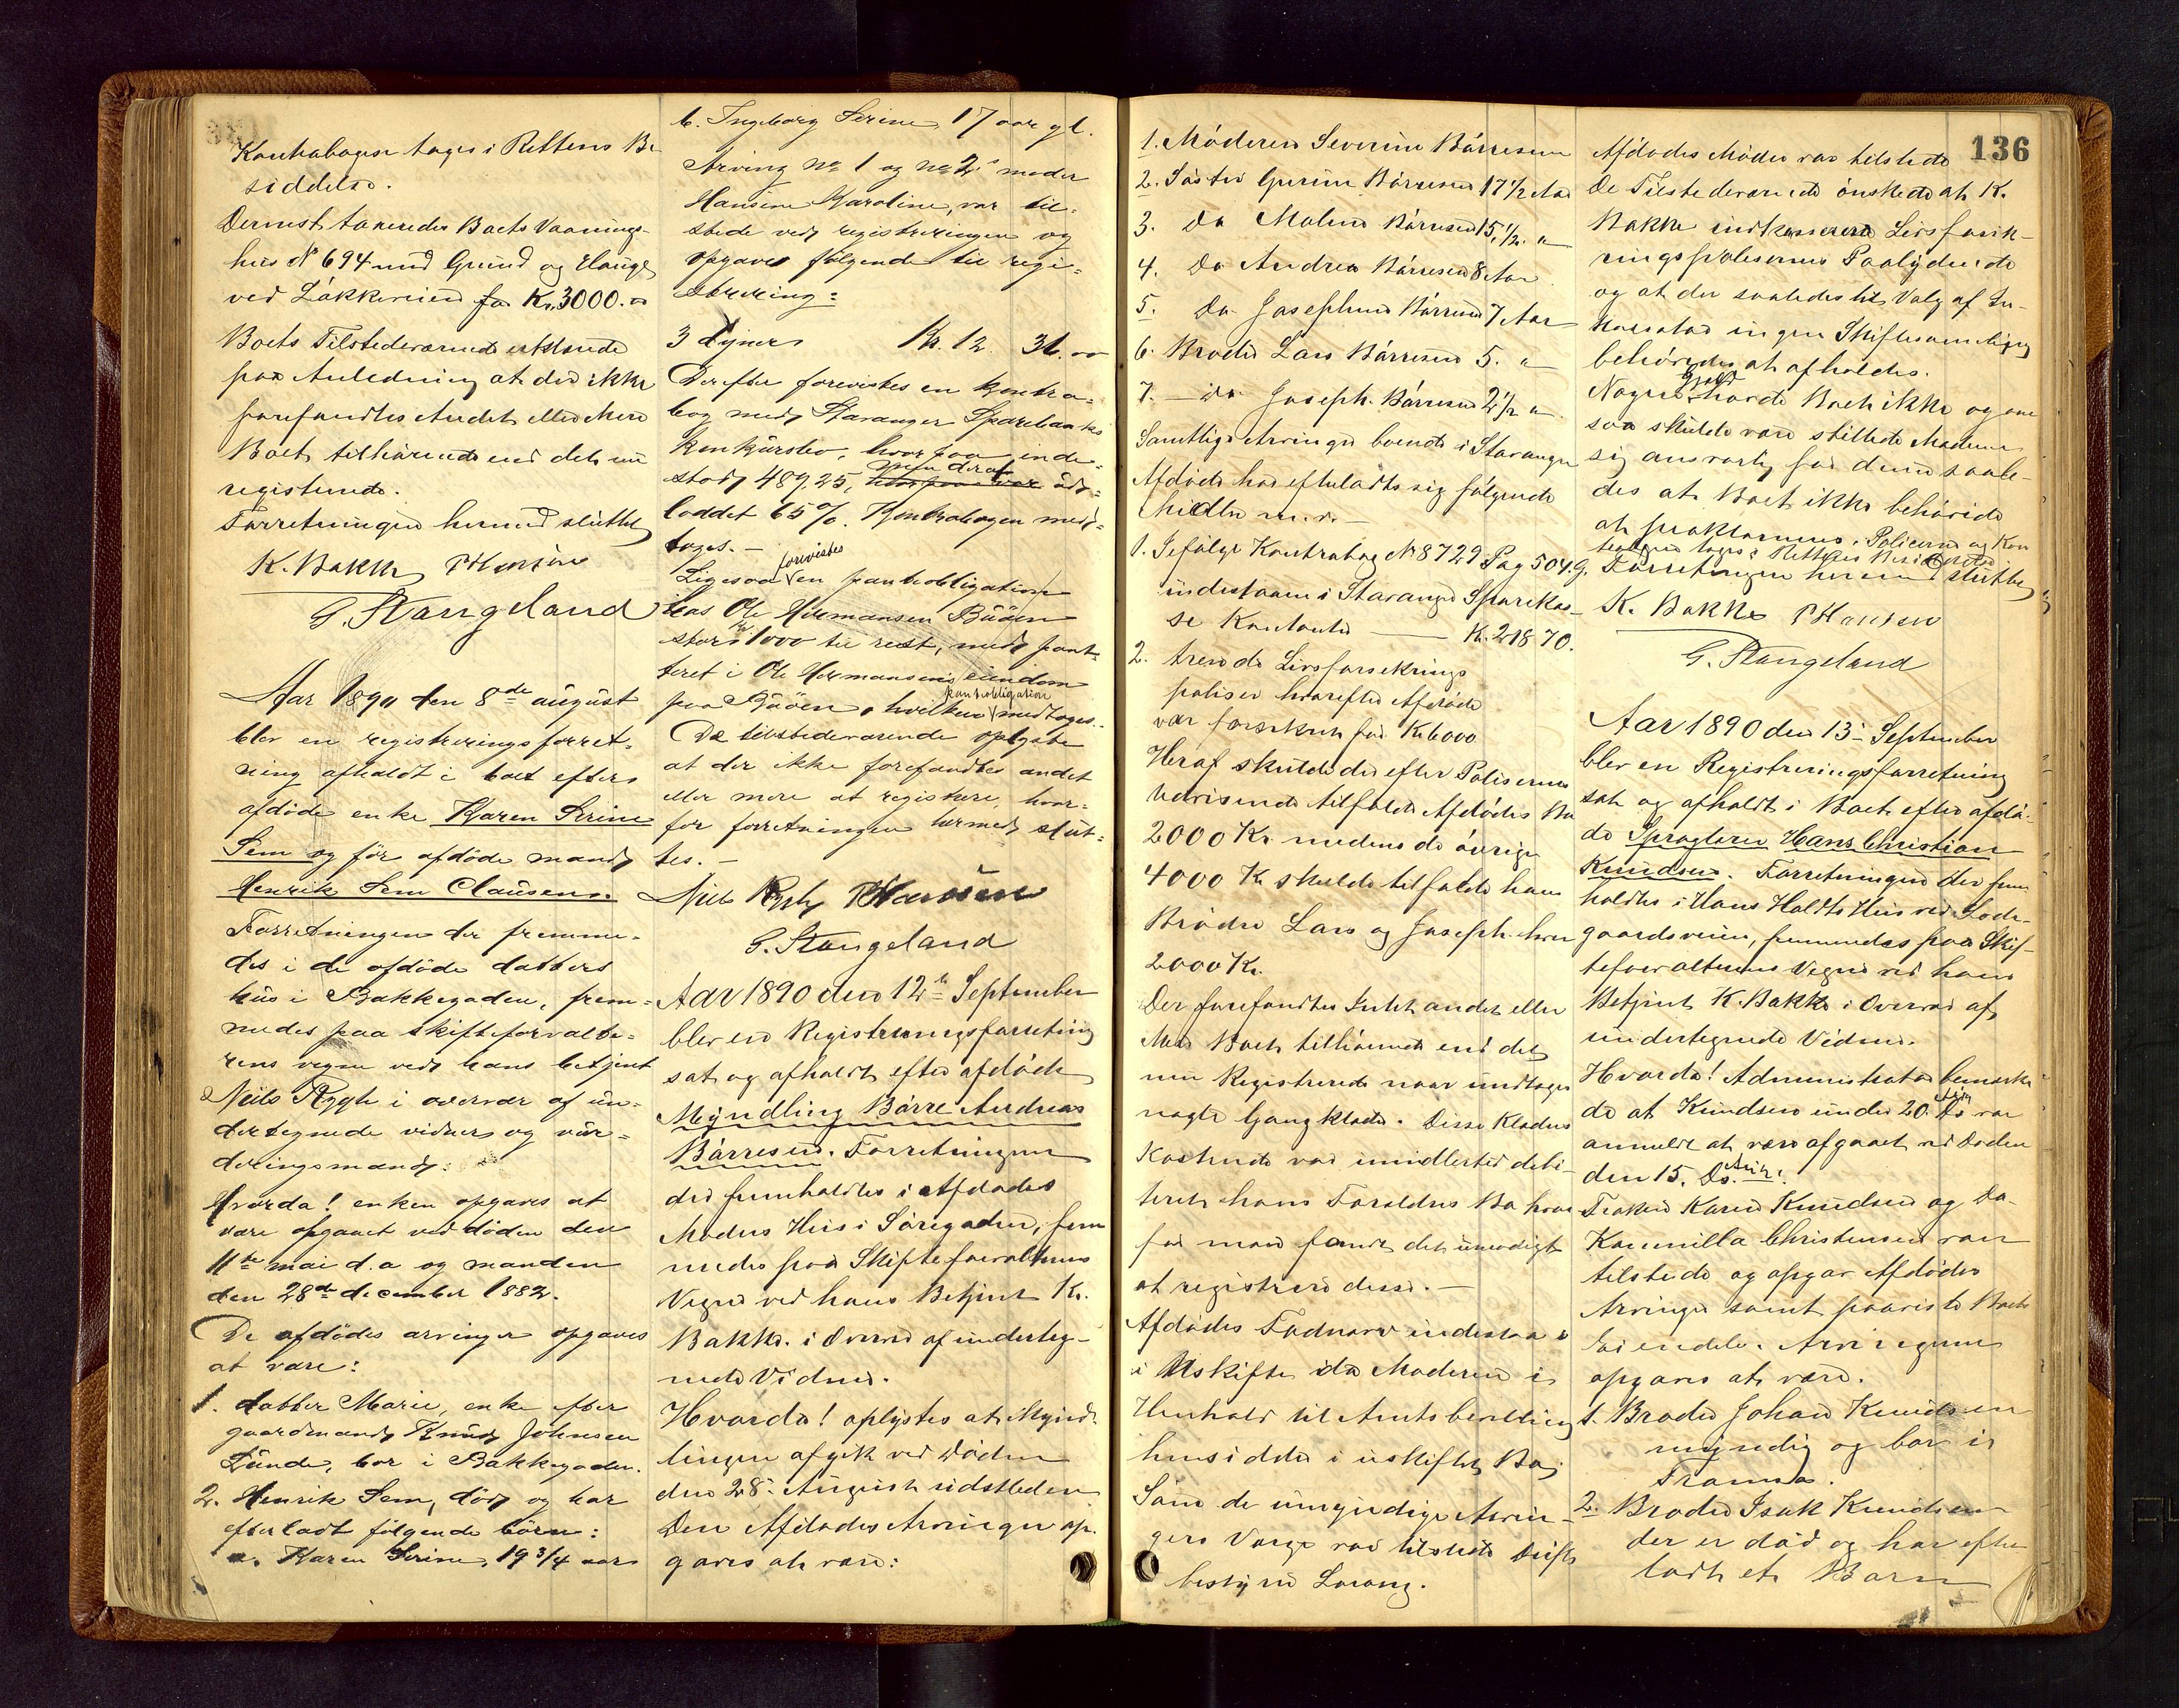 Kontrabogen tages i Rettens Be-
siddelse.
Dernæst taxeredes Boets Vaanings-
hus No 694 med Grund og Hauge
ved Løkkeveien for Kr. 3000.00
Boets Tilstedeværende erklærede
paa Anledning at der ikke
forefandtes Andet eller Mere
Boet tilhørende end det nu
registrerede.
Forretningen hermed sluttet
K. Bakke P Hansen
G. Stangeland
Aar 1890 den 8de august
blev en registreringsforret-
ning afholdt i boet efter
afdöde enke Karen Serine
Sem og før afdöde mand
Henrik Sem Clausen.
Forretningen der fremme-
des i de afdöde datters
hus i Bakkegaden, frem-
medes paa skifteforvalte-
rens vegne ved hans betjent
Neils Rygh i overvær af un-
dertegnede vidner og vur-
deringsmænd:
Hvorda! enken opgaves at
være afgaaet ved døden den
11te mai d.a og manden
den 28de december 1882.
De afdödes arvinger opgaves
at være:
1. datter Marie, enke efter
gaardmand Knud Johnsen
Lunde, bor i Bakkegaden.
2. Henrik Sem, død og har
efterladt følgende børn:
a. Karen Serine, 19 3/4 aar
b. Ingeborg Serine 17 aar gl.
Arving No 1 og No 2s moder
Hansine Karoline, var til-
stede ved registreringen og
opgaves følgende til regi-
strering:
3 dyner Kr. 12 36.00
Derefter forevistes en kontra-
bog med Stavanger Sparebanks
konkursbo, hvorpaa inde-
stod 489,25, men deraf ud-
loddet 65%. Kontrabogen med-
toges. -
Ligesaa forevistes en pantobligation
fra Ole Hermansen Buøen
stor kr 1000 til rest, med pant-
teret i Ole Hermansens eiendom
paa Buøen, hvilken pantobligation medtoges.
De tilstedeværende opgave
at der ikke forefandtes andet
eller mere at registrere, hvor-
for forretningen hermed slut-
tes. -
Niels Rygh P Hansen
G. Stangeland
Aar 1890 den 12te September
blev en Registreringsforretning
sat og afholdt efter afdøde
Myndling Børre Andreas
Børresen. Forretningen
der fremholdtes i Afdødes
Moders Hus i Søregaden, frem
medes paa Skifteforvalterens
Vegne ved hans Betjent K.
Bakke i Overvær af underteg-
nede Vidner.
Hvorda! oplystes at Mynd-
lingen afgik ved Døden
den 28. August sidstleden
Den Afdødes Arvinger op-
gaves at være:
136
1. Moderen Severine Børresen
2. Søster Gurine Børresen 17 1/2 Aar
3. Do Malene Børresen 15 1/2 "
4. Do Andrea Børresen 8 Aar
5. Do Josephine Børresen 7 Aar
6. Broder Lars Børresen 5. "
7. Do Joseph Børresen 2 1/2 "
Samtlige Arvinger boende i Stavanger
Afdøde har efterladt sig følgende
Midler m.v. -
1. Ifølge Kontrabog No 8729 Pag 504.G.
indestaaende i Stavanger Sparekas-
se Kontanter Kr. 218 70.
2. Trende Livsforsikrings
poliser hvorefter Afdøde
var forsikret for Kr. 6000
Heraf skulde der efter Polisernes
Udvisende tilfalde Afdødes Bo
2000 Kr. medens de øvrige
4000 Kr skulde tilfalde hans
Brødre Lars og Joseph hver
2000 Kr.
Der forefandtes Intet andet eller
Mere Boet tilhørende end det
nu Registrerede naar undtages
nogle Gangklæder. Disse Klæders
Kostende var imidlertid debi-
teret hans Forældres Bo hvor
for man fandt det unødigt
at registrere disse. -
Afdødes Fædrearv indestaar
i Uskifte da Moderen i
Henhold til Amtsbevilling
hensidder i uskiftet Bo.
Som de umyndige Arvin-
gers Værge var tilstede Drifts
bestyrer Lorang.
Afdødes Moder var tilstede
De Tilstedeværende ønskede at K.
Bakke indkasserede Livsforsik-
ringspolisernes Paalydende
og at der saaledes til Valg af In-
kassator ingen Skiftesamling
behøvedes at afholdes.
Nogen Gjæld havde Boet ikke og om
saa skulde være stillede Moderen
sig ansvarlig for denne saale-
des at Boet ikke behøvede
at proklameres. Policerne og Kon
trabogen toges i Rettens Besiddelse
Forretningen hermed sluttet
K. Bakke P Hansen
G. Stangeland
Aar 1890 den 13. September
blev en Registreringsforretning
sat og afholdt i Boet efter afdø-
de Sproglærer Hans Christian
Knudsen. Forretningen der frem
holdtes i Hans Holdts Hus ved Lade-
gaardsveien, fremmedes paa Skif-
teforvalterens Vegne ved hans
Betjent K. Bakke i Overvær af
undertegnede Vidner.
Hvorda! Administrator bemærke
de at Knudsen under 20. Ds var
anmeldt at være afgaaet ved Døden
den 15. Ds.
Frøken Karen Knudsen og Do
Kammilla Christensen var
tilstede og opgav Afdødes
Arvinger samt paaviste Boets
Eiendele. Arvingerne
opgaves at være.
1. Broder Johan Knudsen
myndig og bor i
Tromsø.
2. Broder Isak Knudsen
der er død og har efter
ladt et Barn